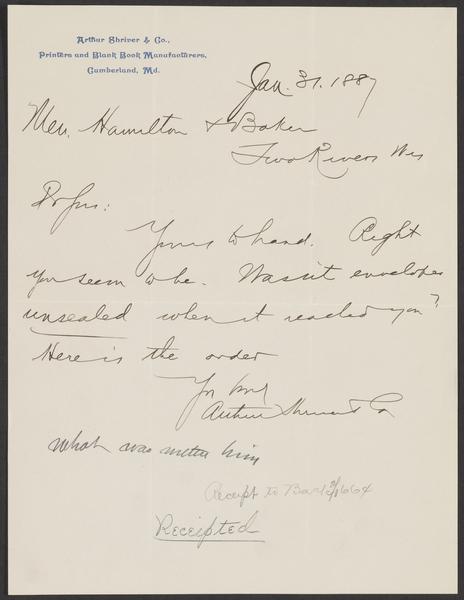 Arthur Shriver & Co.,
Printers and Blank Book Manufacturers,
Cumberland, Md.
Jan. 31. 1887
Hamilton & Baker
Two Rivers Wis
Yours to hand. Right
you seem to be. Wasn't envelope
unsealed when it reached you?
Here is the order
Arthur Shriver & Co
what was
him
Receipt to
Receipted